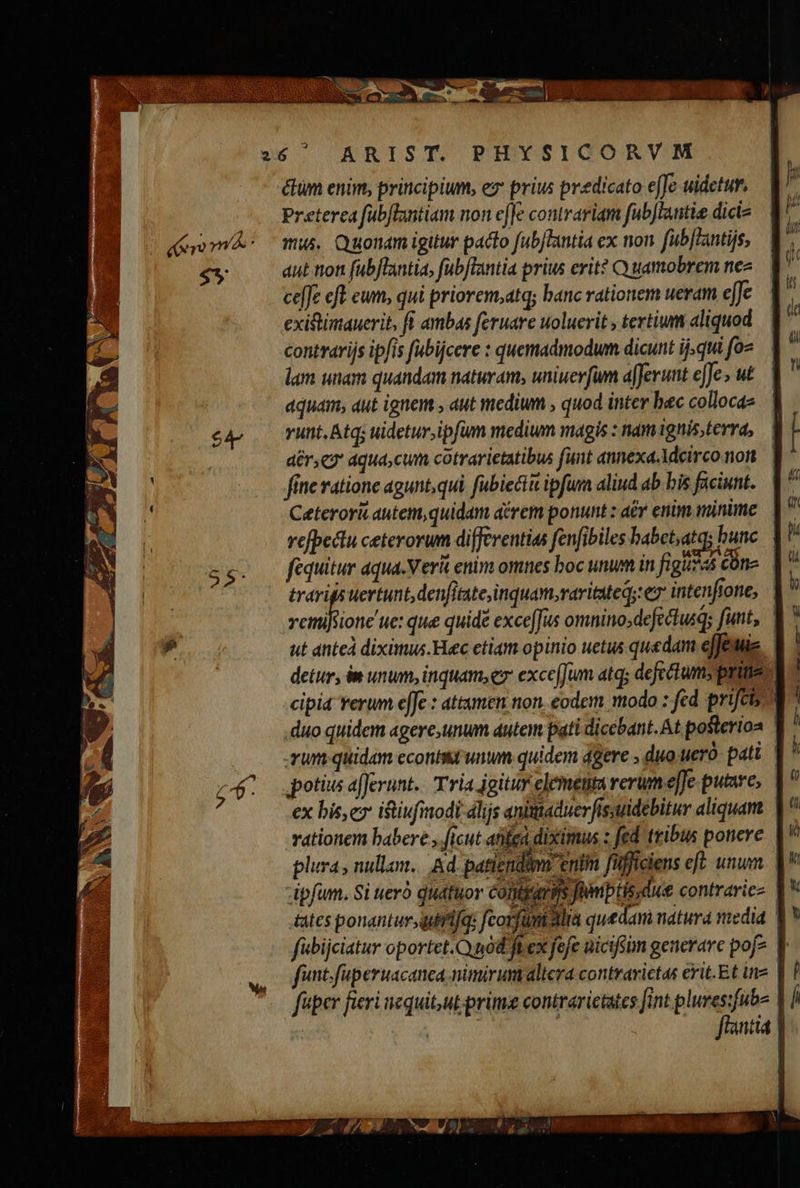 26 ARIST. PHYSICORVM
ctum enim, principium, & prius predicato esse uidetur.
Preterea substantiam non esse contrariam substantiæ dici=
mus. Quonam igitur pacto substantia ex non substantijs,
53
aut non substantia, substantia prius erit? Quamobrem ne=
cesse est eum, qui priorem, atq; hanc rationem ueram esse
existimauerit, si ambas seruare uoluerit, tertium aliquod
contrarijs ipsis subijcere : quemadmodum dicunt ij, qui so=
lam unam quandam naturam, uniuersum asserunt esse, ut
aquam, aut ignem, aut medium, quod inter hæc colloca=
54
runt. Atq; uidetur, ipsum medium magis : nam ignis, terra,
aër, & aqua, cum cōtrarietatibus sunt annexa. Idcirco non
sine ratione agunt, qui subiectū ipsum aliud ab his faciunt.
Cæterorū autem, quidam aërem ponunt : aër enim minime
respectu ceterorum differentias sensibiles habet, atq; hunc
55.
sequitur aqua. Verū enim omnes hoc unum in figuras cōn=
trarijs uertunt, densitate, inquam, raritateq; : & intensione,
remissione'ue: quæ quidē excessus omnino, defectusq; sunt,
ut anteà diximus. Hæc etiam opinio uetus quædam esse ui=
detur, unum, inquam, & excessum atq; defectum, prin=
cipia rerum esse : attamen non eodem modo : sed prisci,
duo quidem agere, unum autem pati dicebant. At posterio=
rum quidam econtra unum quidem agere, duo uerò pati
56.
potius asserunt. Tria igitur elementa rerum esse putare,
ex his, & istiusmodi alijs animaduersis, uidebitur aliquam
rationem habere, sicut anteà diximus : sed tribus ponere
plura, nullam. Ad patiendum enim sufficiens est unum
ipsum. Si uerò quatuor contrarijs sumptis, duæ contrarie=
tates ponantur, utrisq; seorsum alia quædam natura media
subijciatur oportet. Quòd si ex sese uicissim generare pos=
sunt, superuacanea nimirum altera contrarietas erit. Et in=
super fieri nequit, ut primæ contrarietates sint plures: sub=
stantia